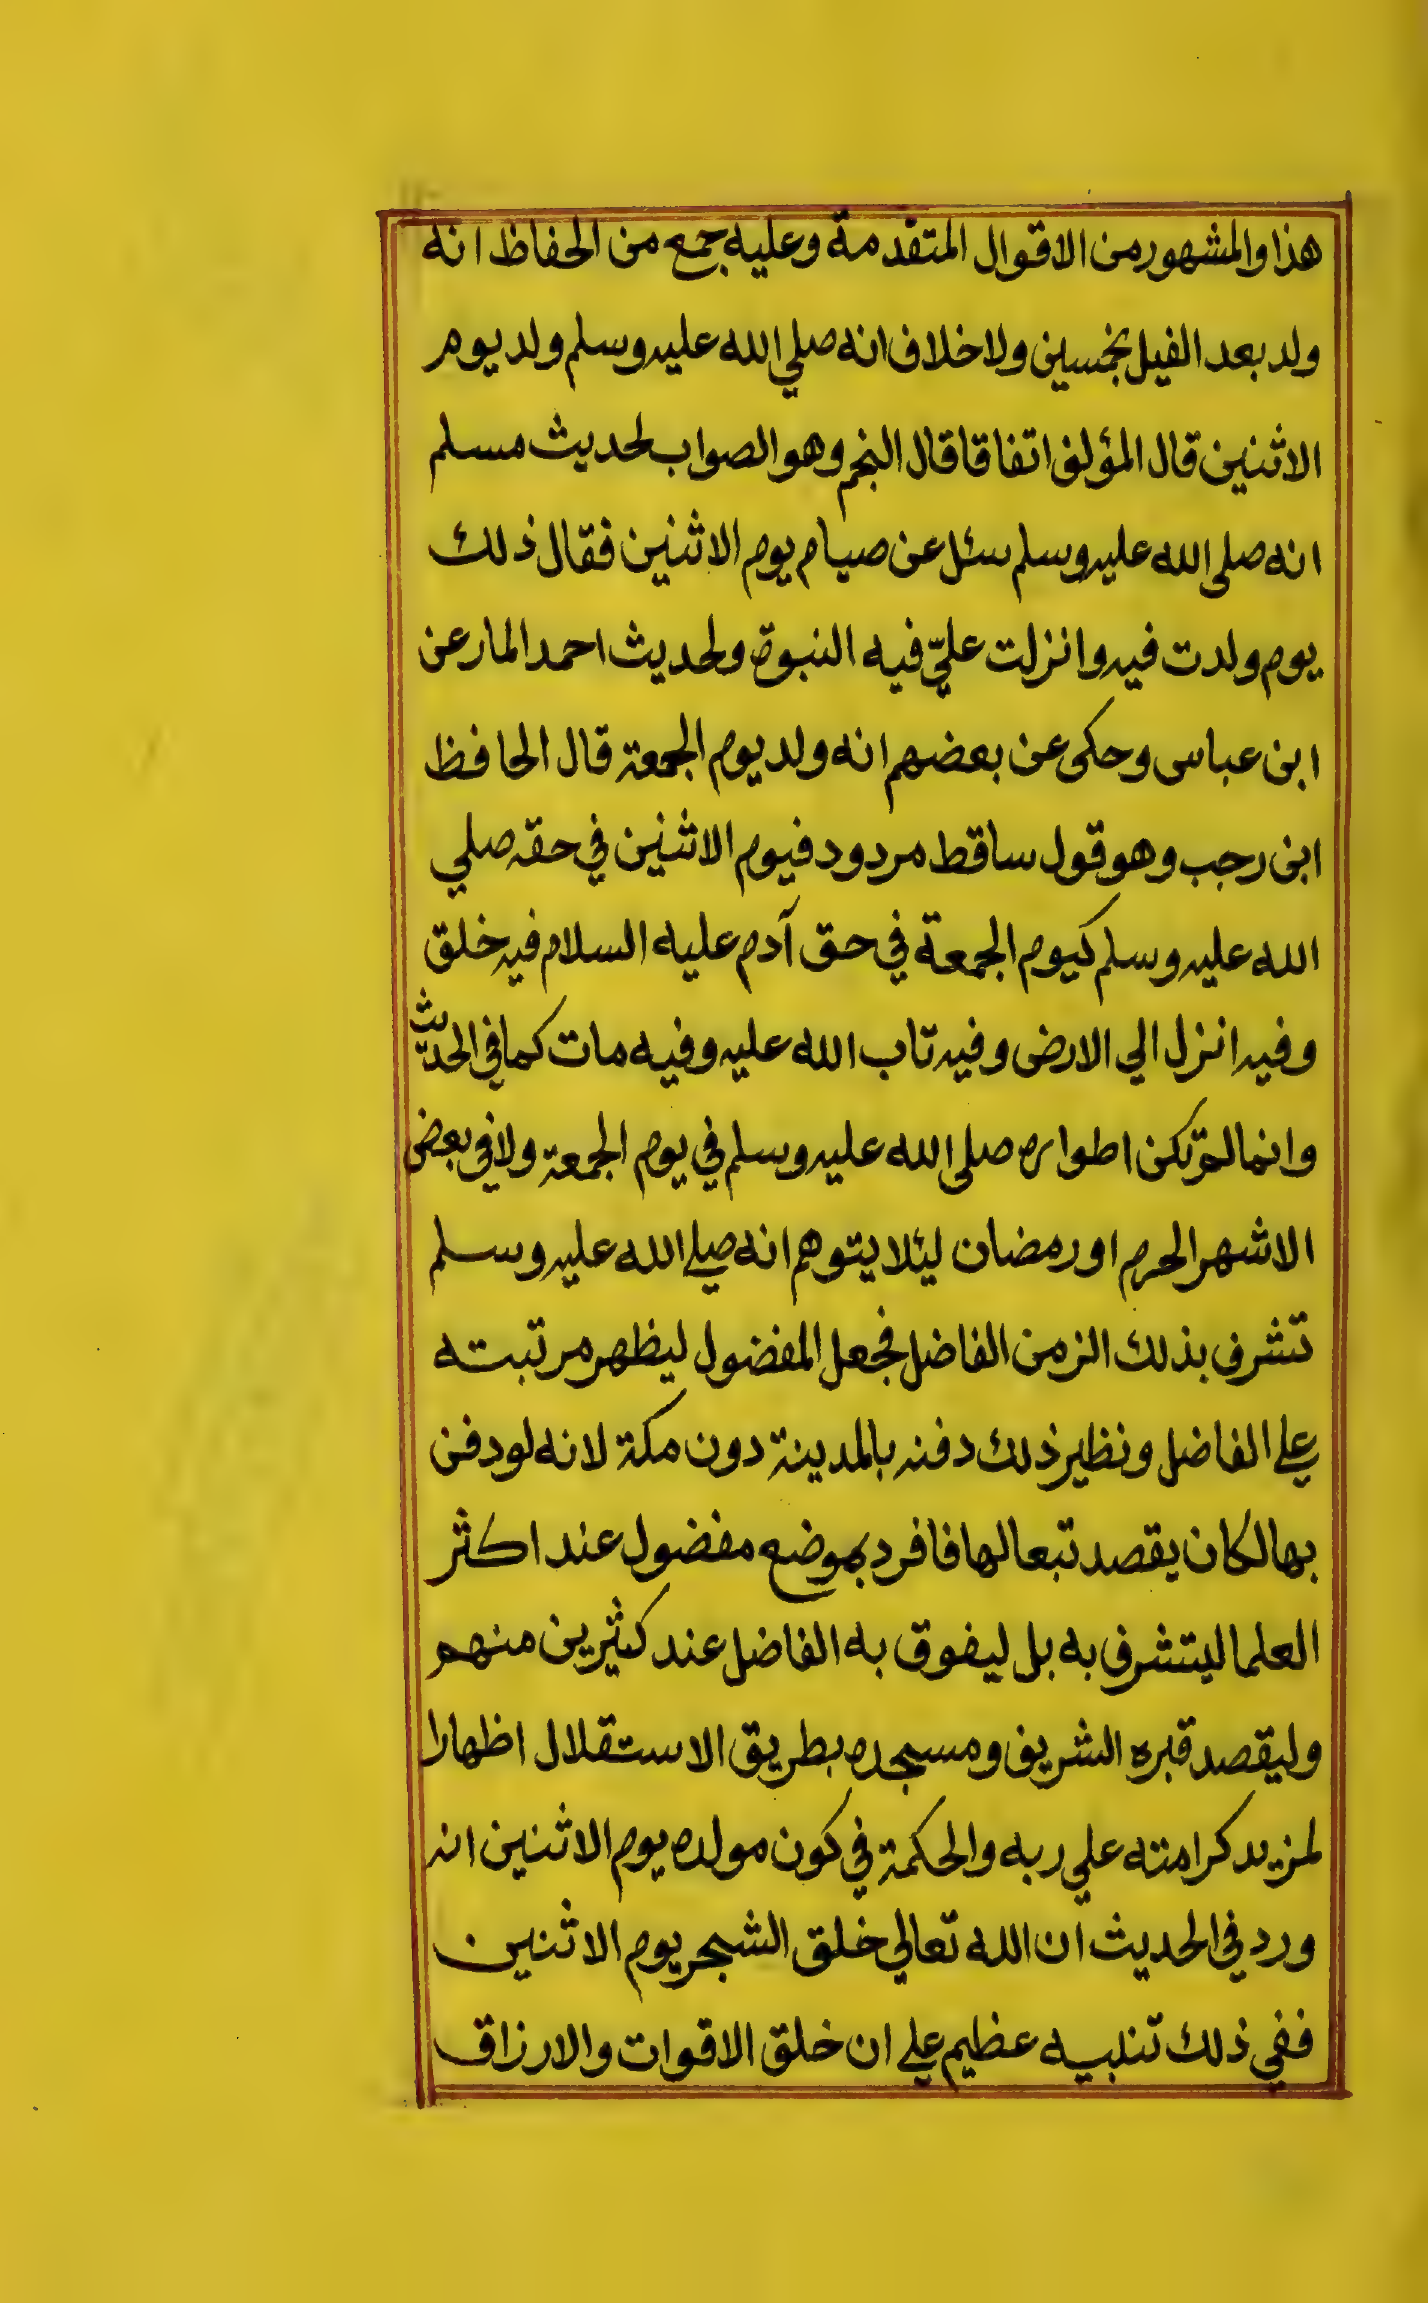 هذا والمشهور من الاقوال المتقدمة وعليه جمع من الحفاظ انه
ولد بعد الفيل بخمسين ولا خلاف انه صلي الله عليه وسلم ولد يوم
الاثنين قال المؤلف اتفاقا قال النجم وهو الصواب لحديث مسلم
انه صلى الله عليه وسلم سئل عن صيام يوم الاثنين فقال ذلك
يوم ولدت فيه وانزلت عليّ فيه النبوة ولحديث احمد المار عن
ابن عباس وحكى عن بعضهم انه ولد يوم الجمعة قال الحافظ
ابن رجب وهو قول ساقط مردود فيوم الاثنين في حقه صلي
الله عليه وسلم كيوم الجمعة في حق آدم عليه السلام فيه خلق
وفيه انزل الي الارض وفيه تاب الله عليه وفيه مات كما في الحديث
وانما لم تكن اطواره صلى الله عليه وسلم في يوم الجمعة ولا في بعض
الاشهر الحرم او رمضان ليئلا يتوهم انه صلے الله عليه وسلم
تشرف بذلك الزمن الفاضل فجعل المفضول ليظهر مرتبته
علے الفاضل ونظير ذلك دفنه بالمدينة دون مكة لانه لو دفن
بها لكان يقصد تبعا لها فافرد بموضع مفضول عند اكثر
العلما ليتشرف به بل ليفوق به الفاضل عند كثيرين منهم
وليقصد قبره الشريف ومسجده بطريق الاستقلال اظهارا
لمزيد كرامته علي ربه والحكمة في كون مولده يوم الاثنين انه
ورد في الحديث ان الله تعالي خلق الشجر يوم الاثنين
ففي ذلك تنبيه عظيم علے ان خلق الاقوات والارزاق